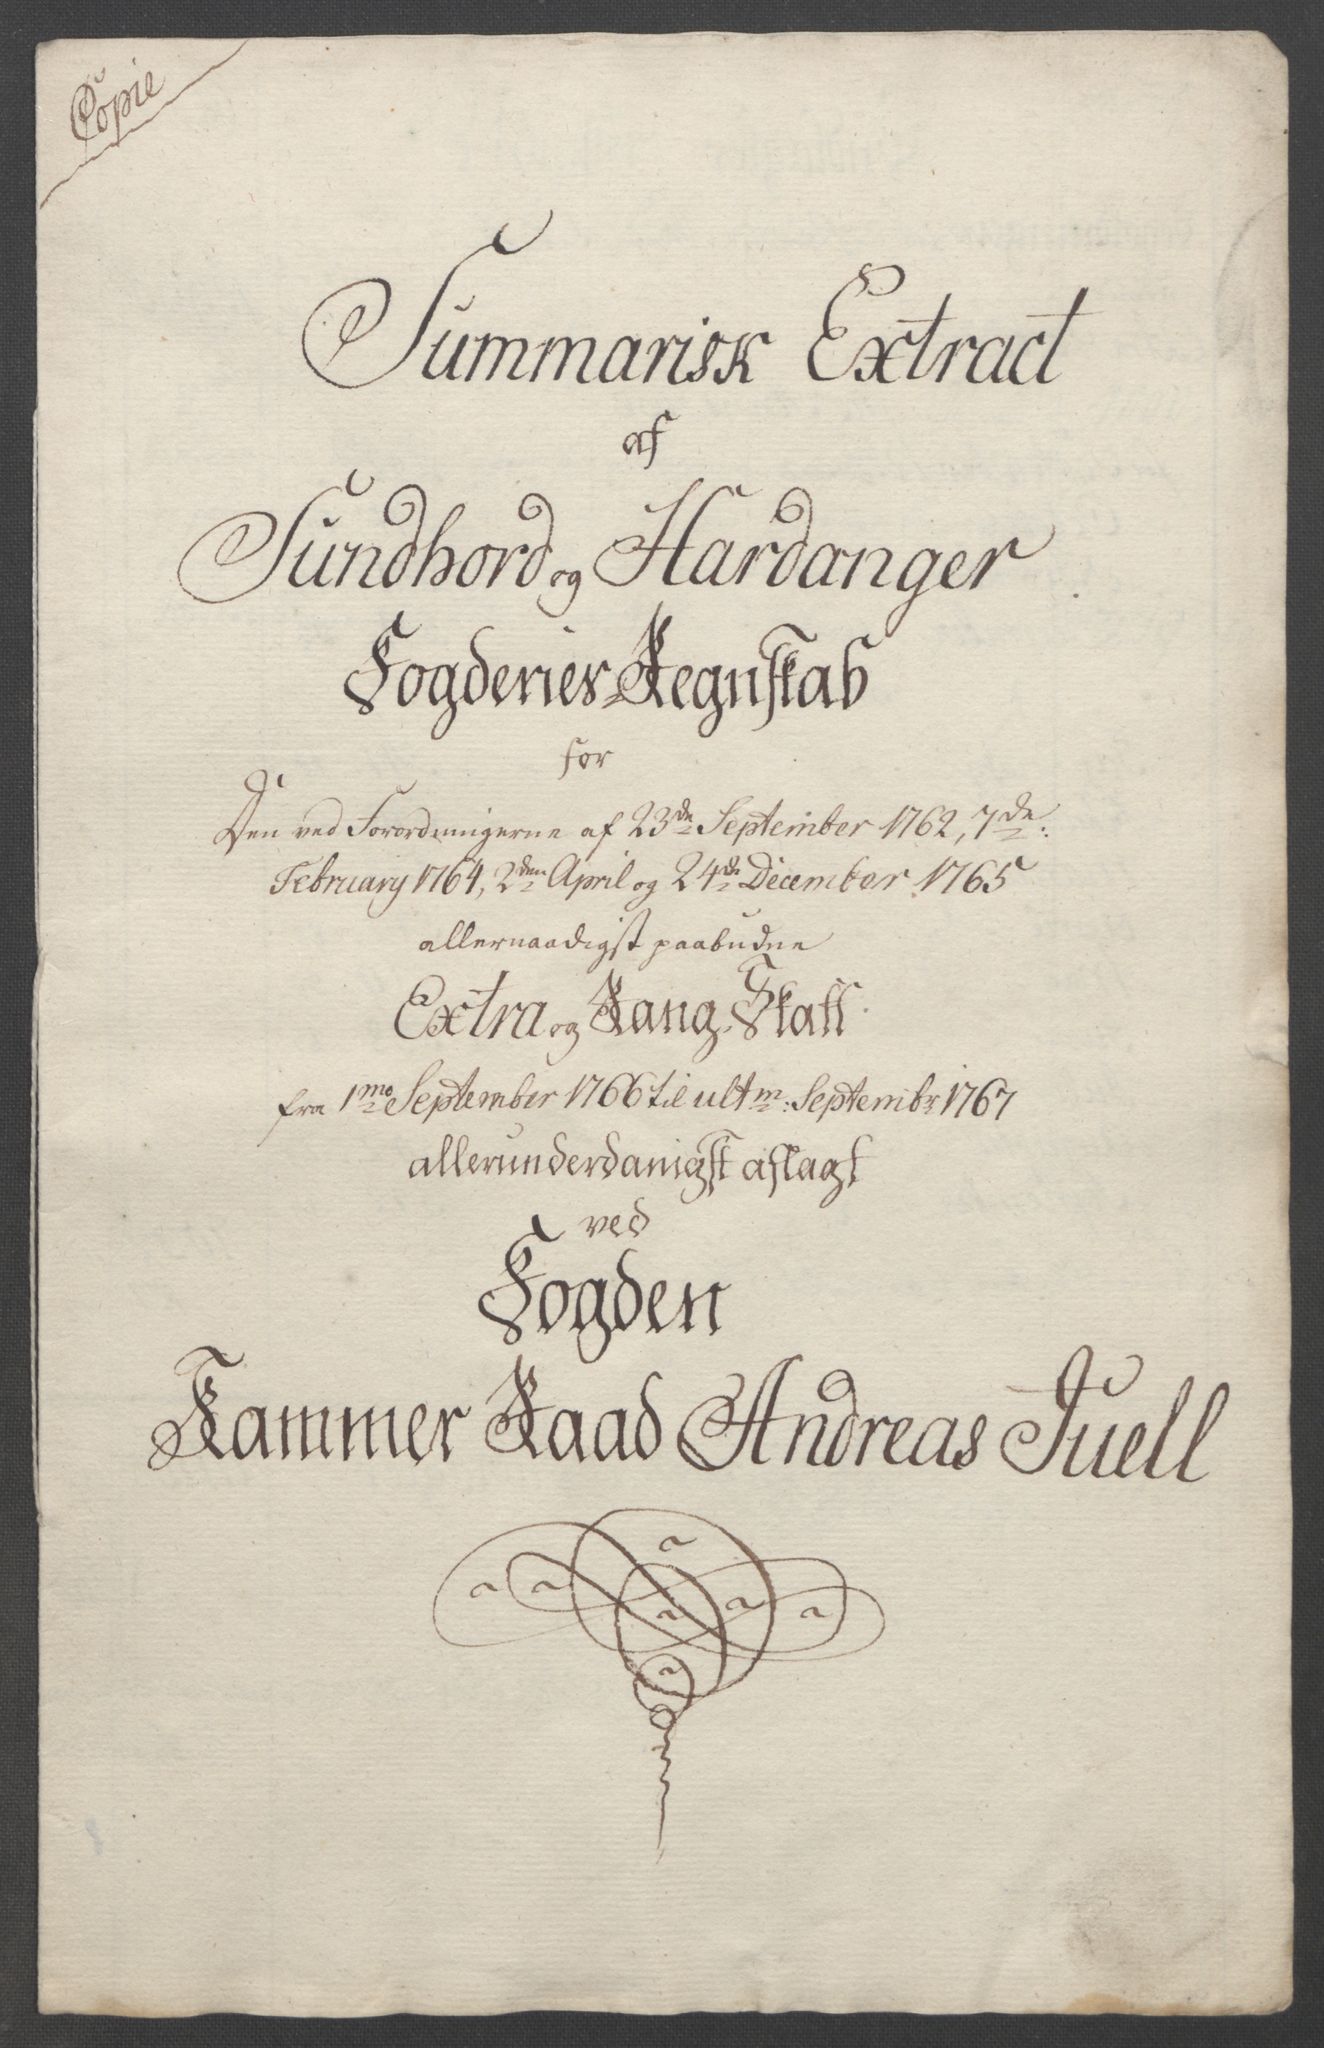 Copie
Summarisk Extract
af
Sundhord og Hardanger
Fogderies Regnskab
for
Den ved Forordningerne af 23de September 1762, 7de:
February 1764, 2den April og 24de December 1765
allernaadigst paabudne
Extra og Rang Skatt
fra 1mo September 1766 til ultm: Septembr 1767
allerunderdanigst aflagt
ved
Fogden
Kammer Raad Andreas Juell